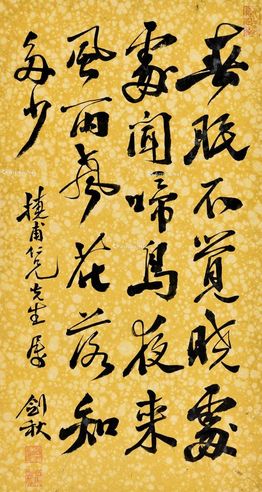 春眠不覺曉處
處聞啼鳥夜来
風雨聲花落知
多少
甫仁兄先生屬
劍秋